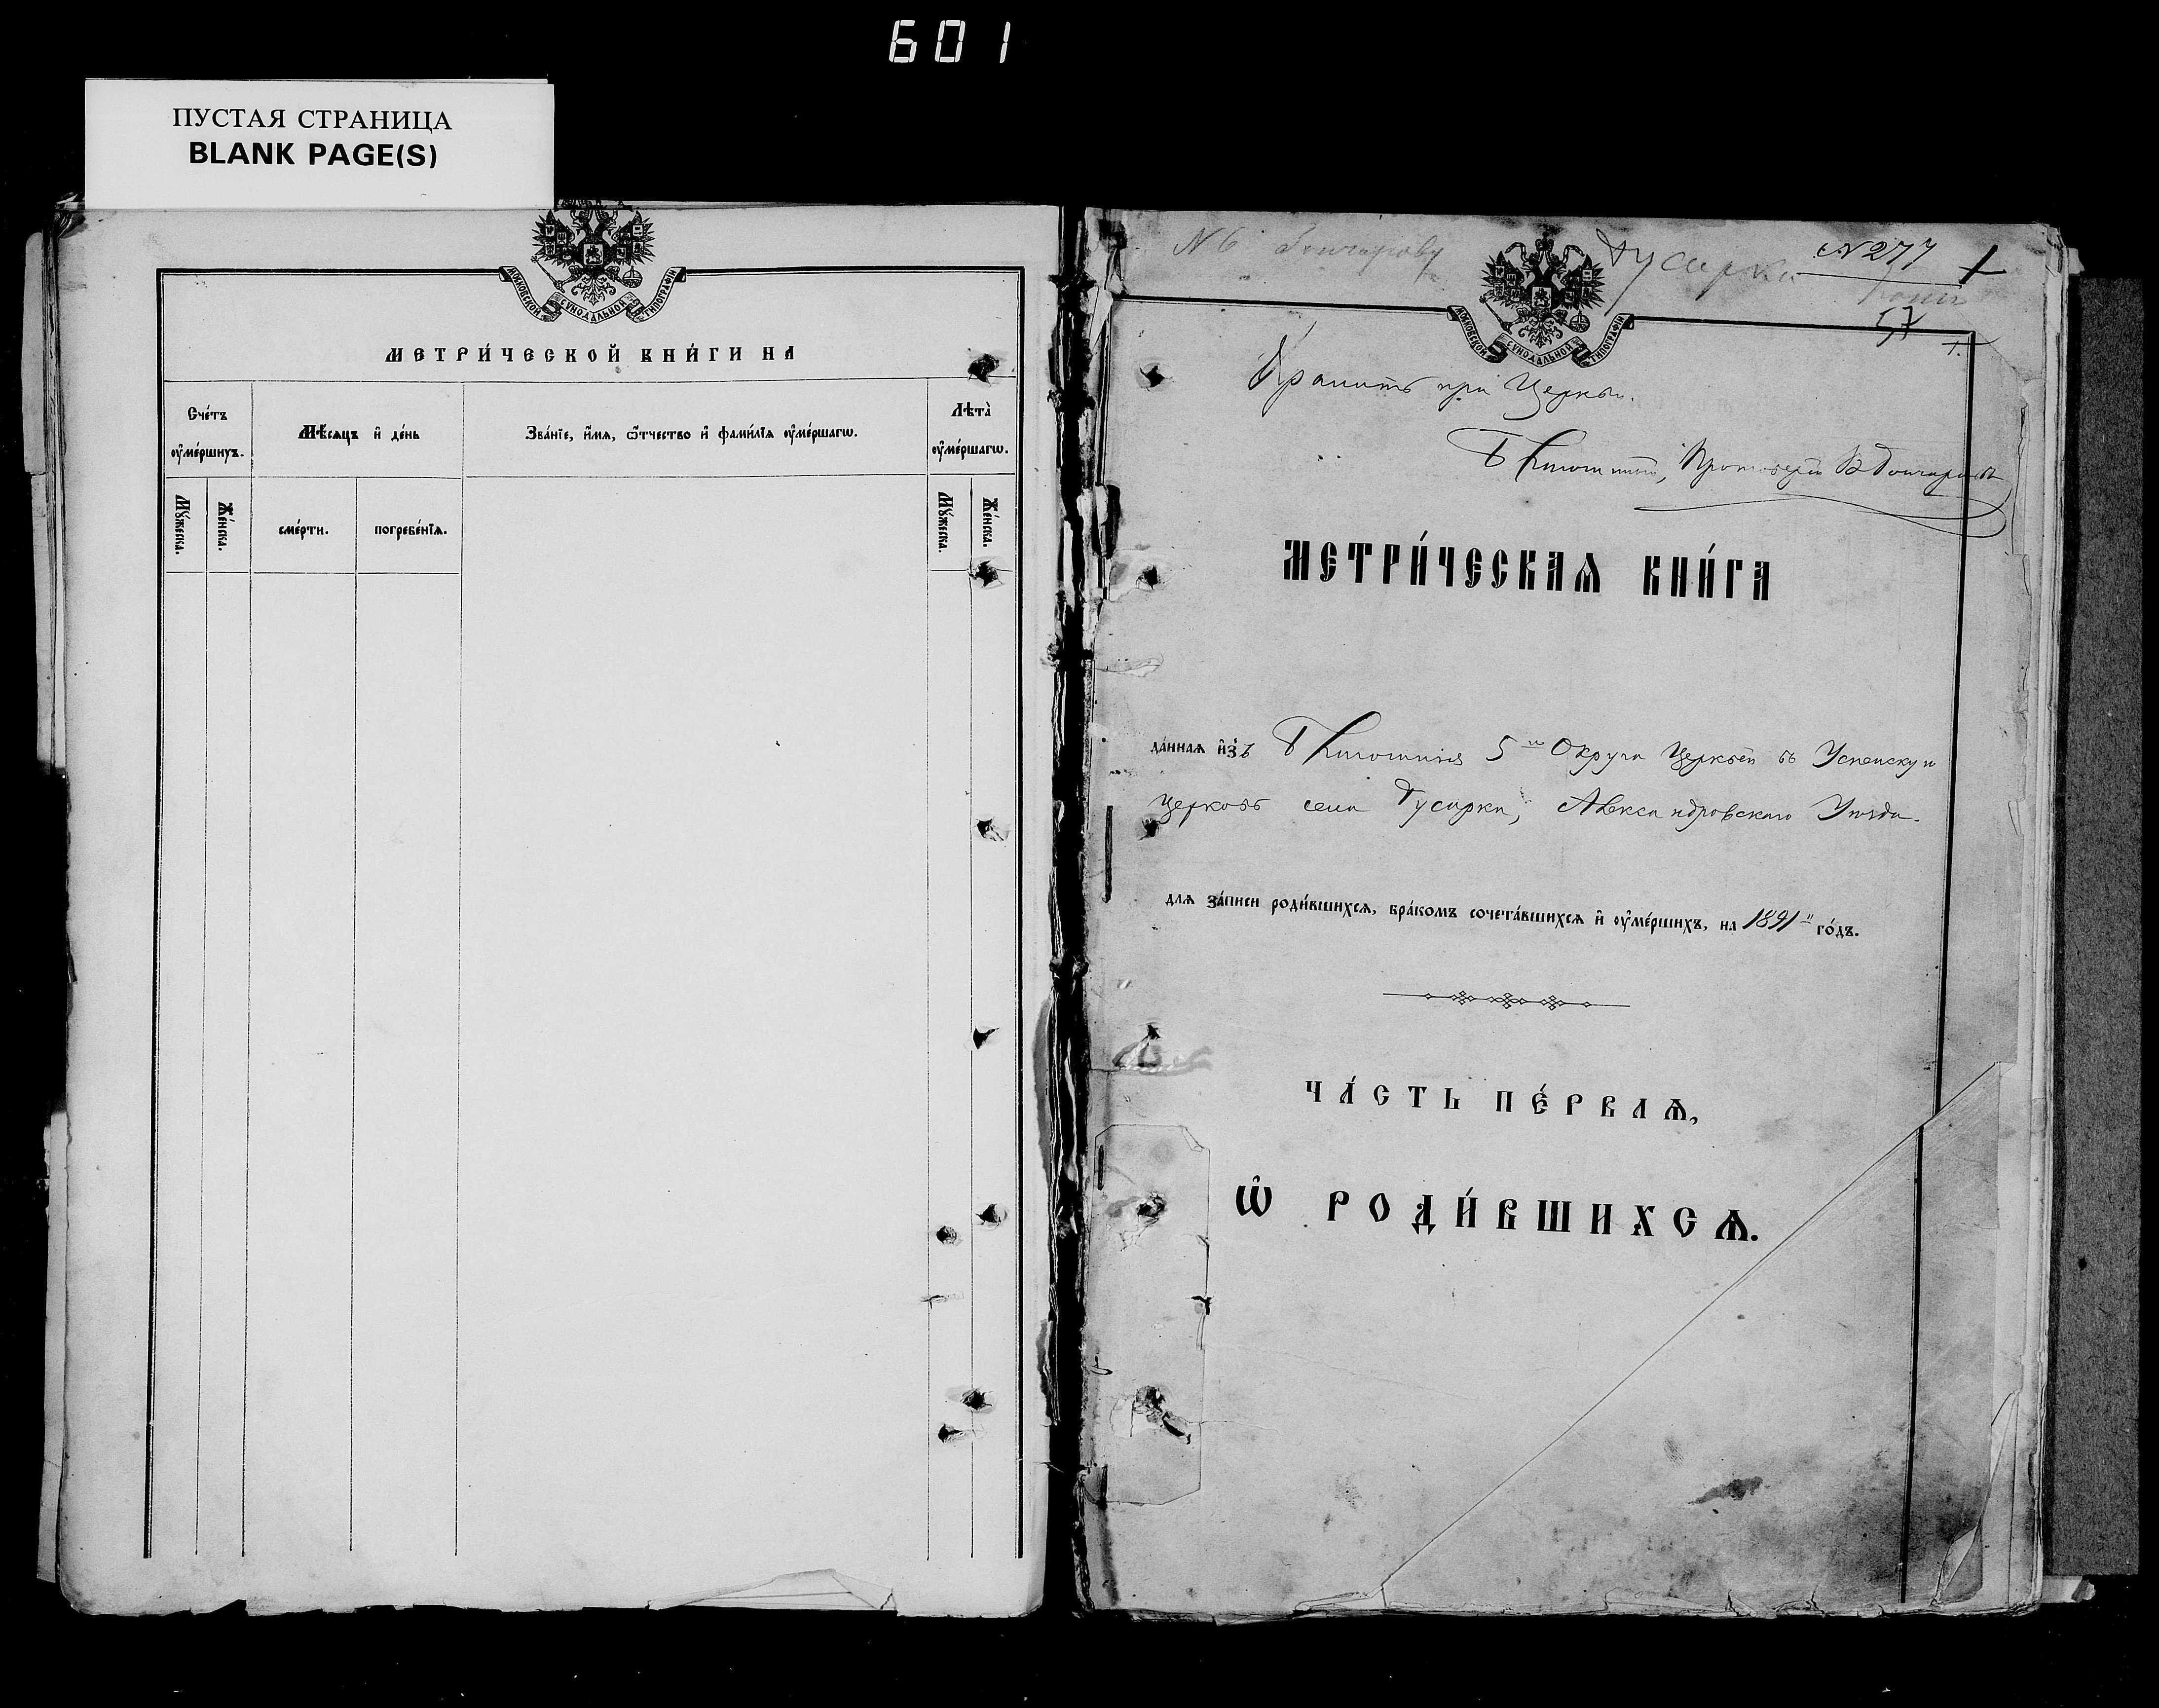 601
ПУСТАЯ СТРАНИЦА
BLANK PAGE(S)
МОСКОВСКОЙ СѴНОДАЛЬНОЙ ТИПОГРАФІИ
МЕТРИ́ЧЕСКОЙ КНИ́ГИ НА
Сче́тъ ᲂу҆ме́ршихъ.
Мѣ́сяцъ и҆ де́нь
Зва́нїе, и҆́мѧ, ѿте́чество и҆ фами́лїѧ ᲂу҆ме́ршагѡ.
Лѣта̀ ᲂу҆ме́ршагѡ.
Мꙋ́жеска.
Же́нска.
сме́рти.
погребе́нїѧ.
Мꙋ́жеска.
Же́нска.
N 6 Гончарову
Гусарки
N 277
1
57
МОСКОВСКОЙ СѴНОДАЛЬНОЙ ТИПОГРАФІИ
Хранить при Церкви.
Протоіерей В Гончаровъ
МЕТРИ́ЧЕСКАѦ КНИ́ГА
да́ннаѧ и҆зъ Благочинія 5го Округа Церквей въ Успенскую
Церковь села Гусарки, Александровскаго Уѣзда.
длѧ за́писи роди́вшихсѧ, бра́комъ сочета́вшихсѧ и҆ ᲂу҆ме́ршихъ, на 1891й го́дъ.
ЧА́СТЬ ПЕ́РВАѦ,
Ѽ РОДИ́ВШИХСѦ.